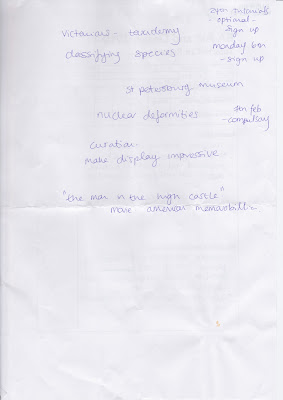 victorians - taxidermy
classifying species
- optional -
sign up
monday 6th
- sign up
st petersburg museum
nuclear deformities
feb
- compulsory
curation.
make display impressive.
"the man in the high castle"
more american memorabilia.